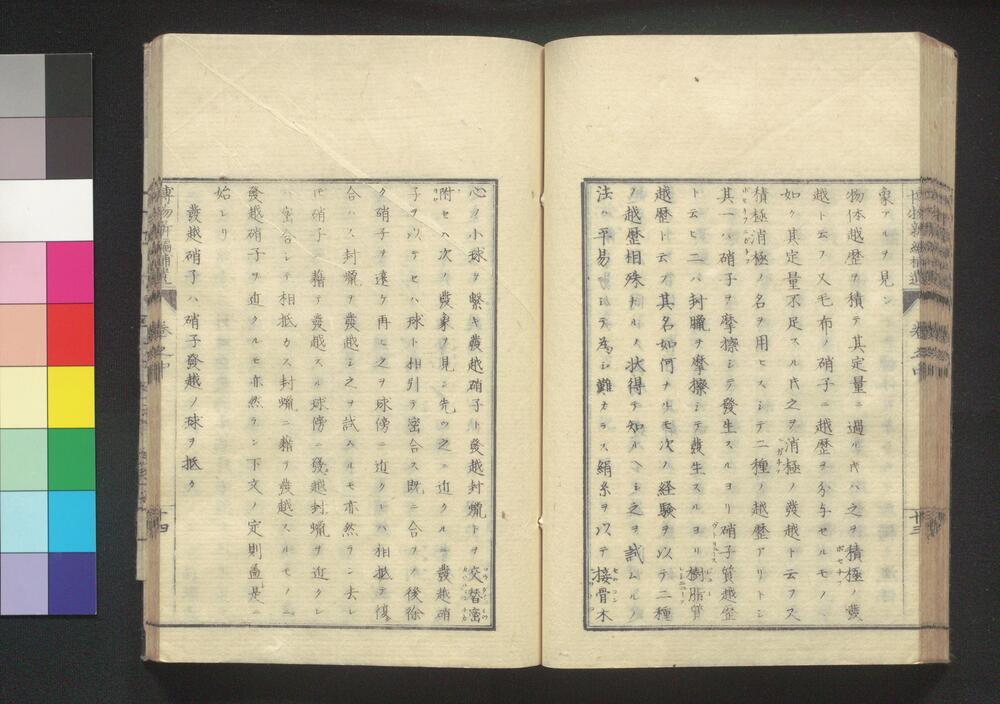 象アルヲ見ン
物体越歴ヲ積テ其定量ニ過ルヰハ之ヲ積極ノ發
越ト云フ又毛布ノ硝子ニ越歴ヲ分与セルモノヽ
如ク其定量不足スルヰ之ヲ消極ノ發越ト云フス
積極消極ノ名ヲ用ヒスシテ二種ノ越歴アリトシ
其一ハ硝子ヲ摩擦シテ發生スルヨリ硝子質越歴
ト云ヒ二ハ封臘ヲ摩擦シテ發生スルヨリ樹脂質
越歴ト云フ其名如何ナルモ次ノ経験ヲ以テ二種
ノ越歴相殊ナルノ状得テ知ルヘシ之ヲ試ムルノ
法ハ平易ニシテ為シ難カラス絹糸ヲ以テ接骨木
心ノ小球ヲ繋キ發越硝子ト發越封蝋トヲ交替密
附セハ次ノ發象ヲ見ン先ツ之ニ近クルニ發越硝
子ヲ以テセハ球ト相引テ密合ス既ニ合フノ後徐
ク硝子ヲ遠ケ再ヒ之ヲ球傍ニ近クレハ相抵テ復
合ハス封蝋ヲ發越シ之ヲ試ムルモ亦然ラン去レ
𪜈硝子ニ藉テ發越スル球傍ニ發越封蝋ヲ近クレ
ハ密合シテ相抵カス封蝋ニ藉テ發越スルモノニ
發越硝子ヲ近クルモ亦然ラン下文ノ定則盖是ニ
始レリ
發越硝子ハ硝子發越ノ球ヲ抵ク
卷之四
十四